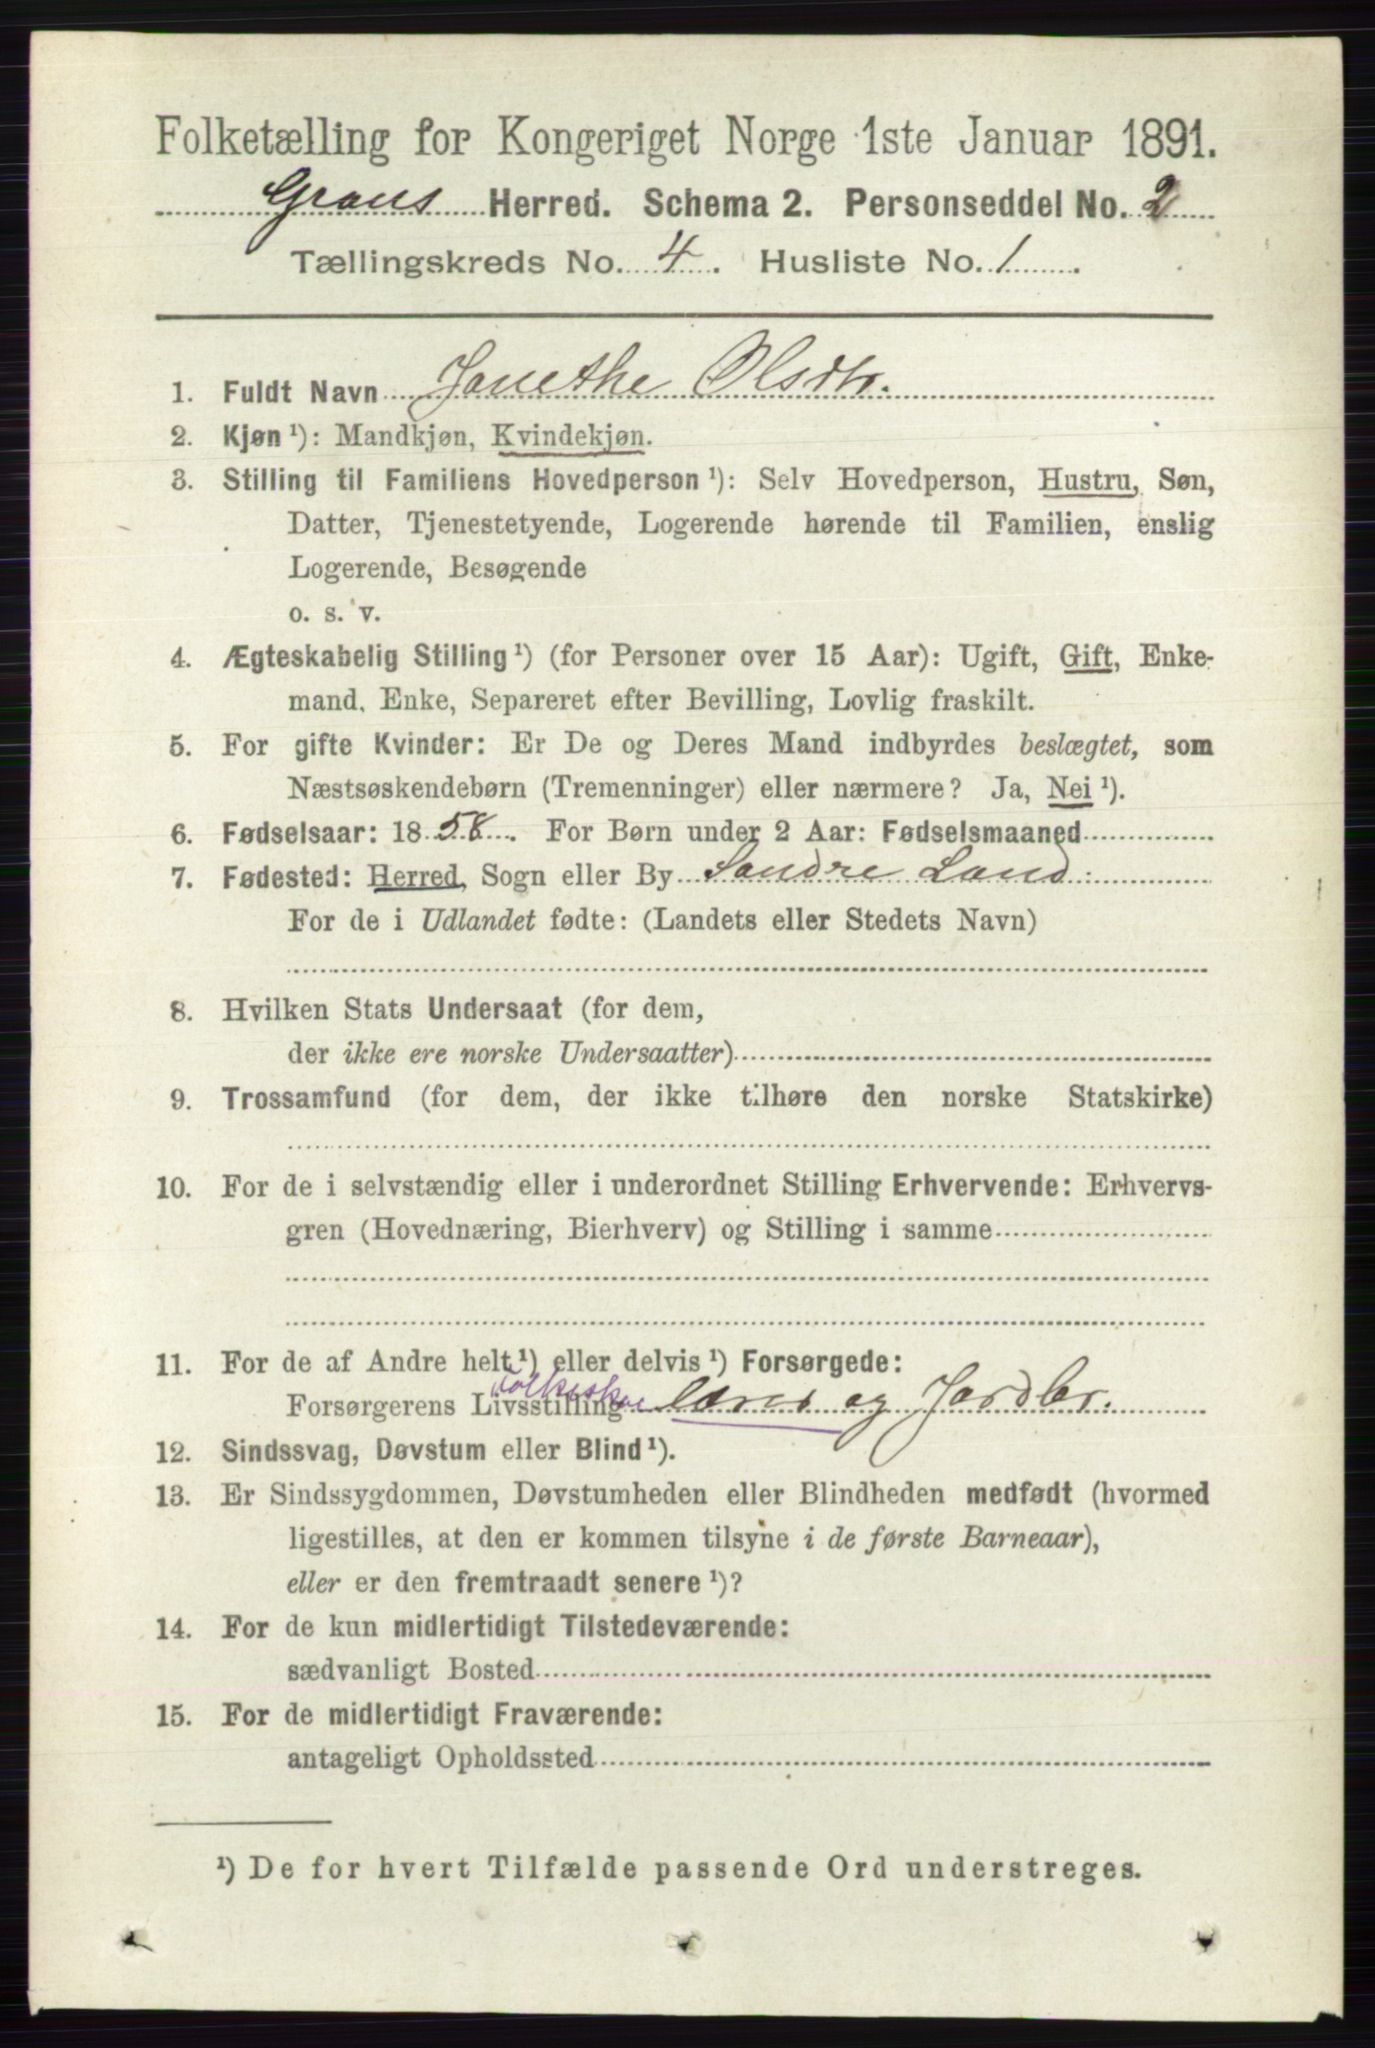 Folketælling for Kongeriget Norge 1ste Januar 1891.
Grans Herred. Schema 2. Personseddel No. 2
Tællingskreds No. 4. Husliste No. 1.
1. Fuldt Navn Janethe Olsdtr.
2. Kjøn ¹): Mandkjøn, Kvindekjøn.
3. Stilling til Familiens Hovedperson ¹): Selv Hovedperson, Hustru, Søn,
Datter, Tjenestetyende, Logerende hørende til Familien, enslig
Logerende, Besøgende
o. s. v.
4. Ægteskabelig Stilling ¹) (for Personer over 15 Aar): Ugift, Gift, Enke-
mand, Enke, Separeret efter Bevilling, Lovlig fraskilt.
5. For gifte Kvinder: Er De og Deres Mand indbyrdes beslægtet, som
Næstsøskendebørn (Tremenninger) eller nærmere? Ja, Nei ¹).
6. Fødselsaar: 1858. For Børn under 2 Aar: Fødselsmaaned
7. Fødested: Herred, Sogn eller By Søndre Land
For de i Udlandet fødte: (Landets eller Stedets Navn)
8. Hvilken Stats Undersaat (for dem,
der ikke ere norske Undersaatter)
9. Trossamfund (for dem, der ikke tilhøre den norske Statskirke)
10. For de i selvstændig eller i underordnet Stilling Erhvervende: Erhvervs-
gren (Hovednæring, Bierhverv) og Stilling i samme
11. For de af Andre helt ¹) eller delvis ¹) Forsørgede:
Forsørgerens Livsstilling Folkeskolærer og Jordbr.
12. Sindssvag, Døvstum eller Blind ¹).
13. Er Sindssygdommen, Døvstumheden eller Blindheden medfødt (hvormed
ligestilles, at den er kommen tilsyne i de første Barneaar),
eller er den fremtraadt senere ¹)?
14. For de kun midlertidigt Tilstedeværende:
sædvanligt Bosted
15. For de midlertidigt Fraværende:
antageligt Opholdssted
¹) De for hvert Tilfælde passende Ord understreges.